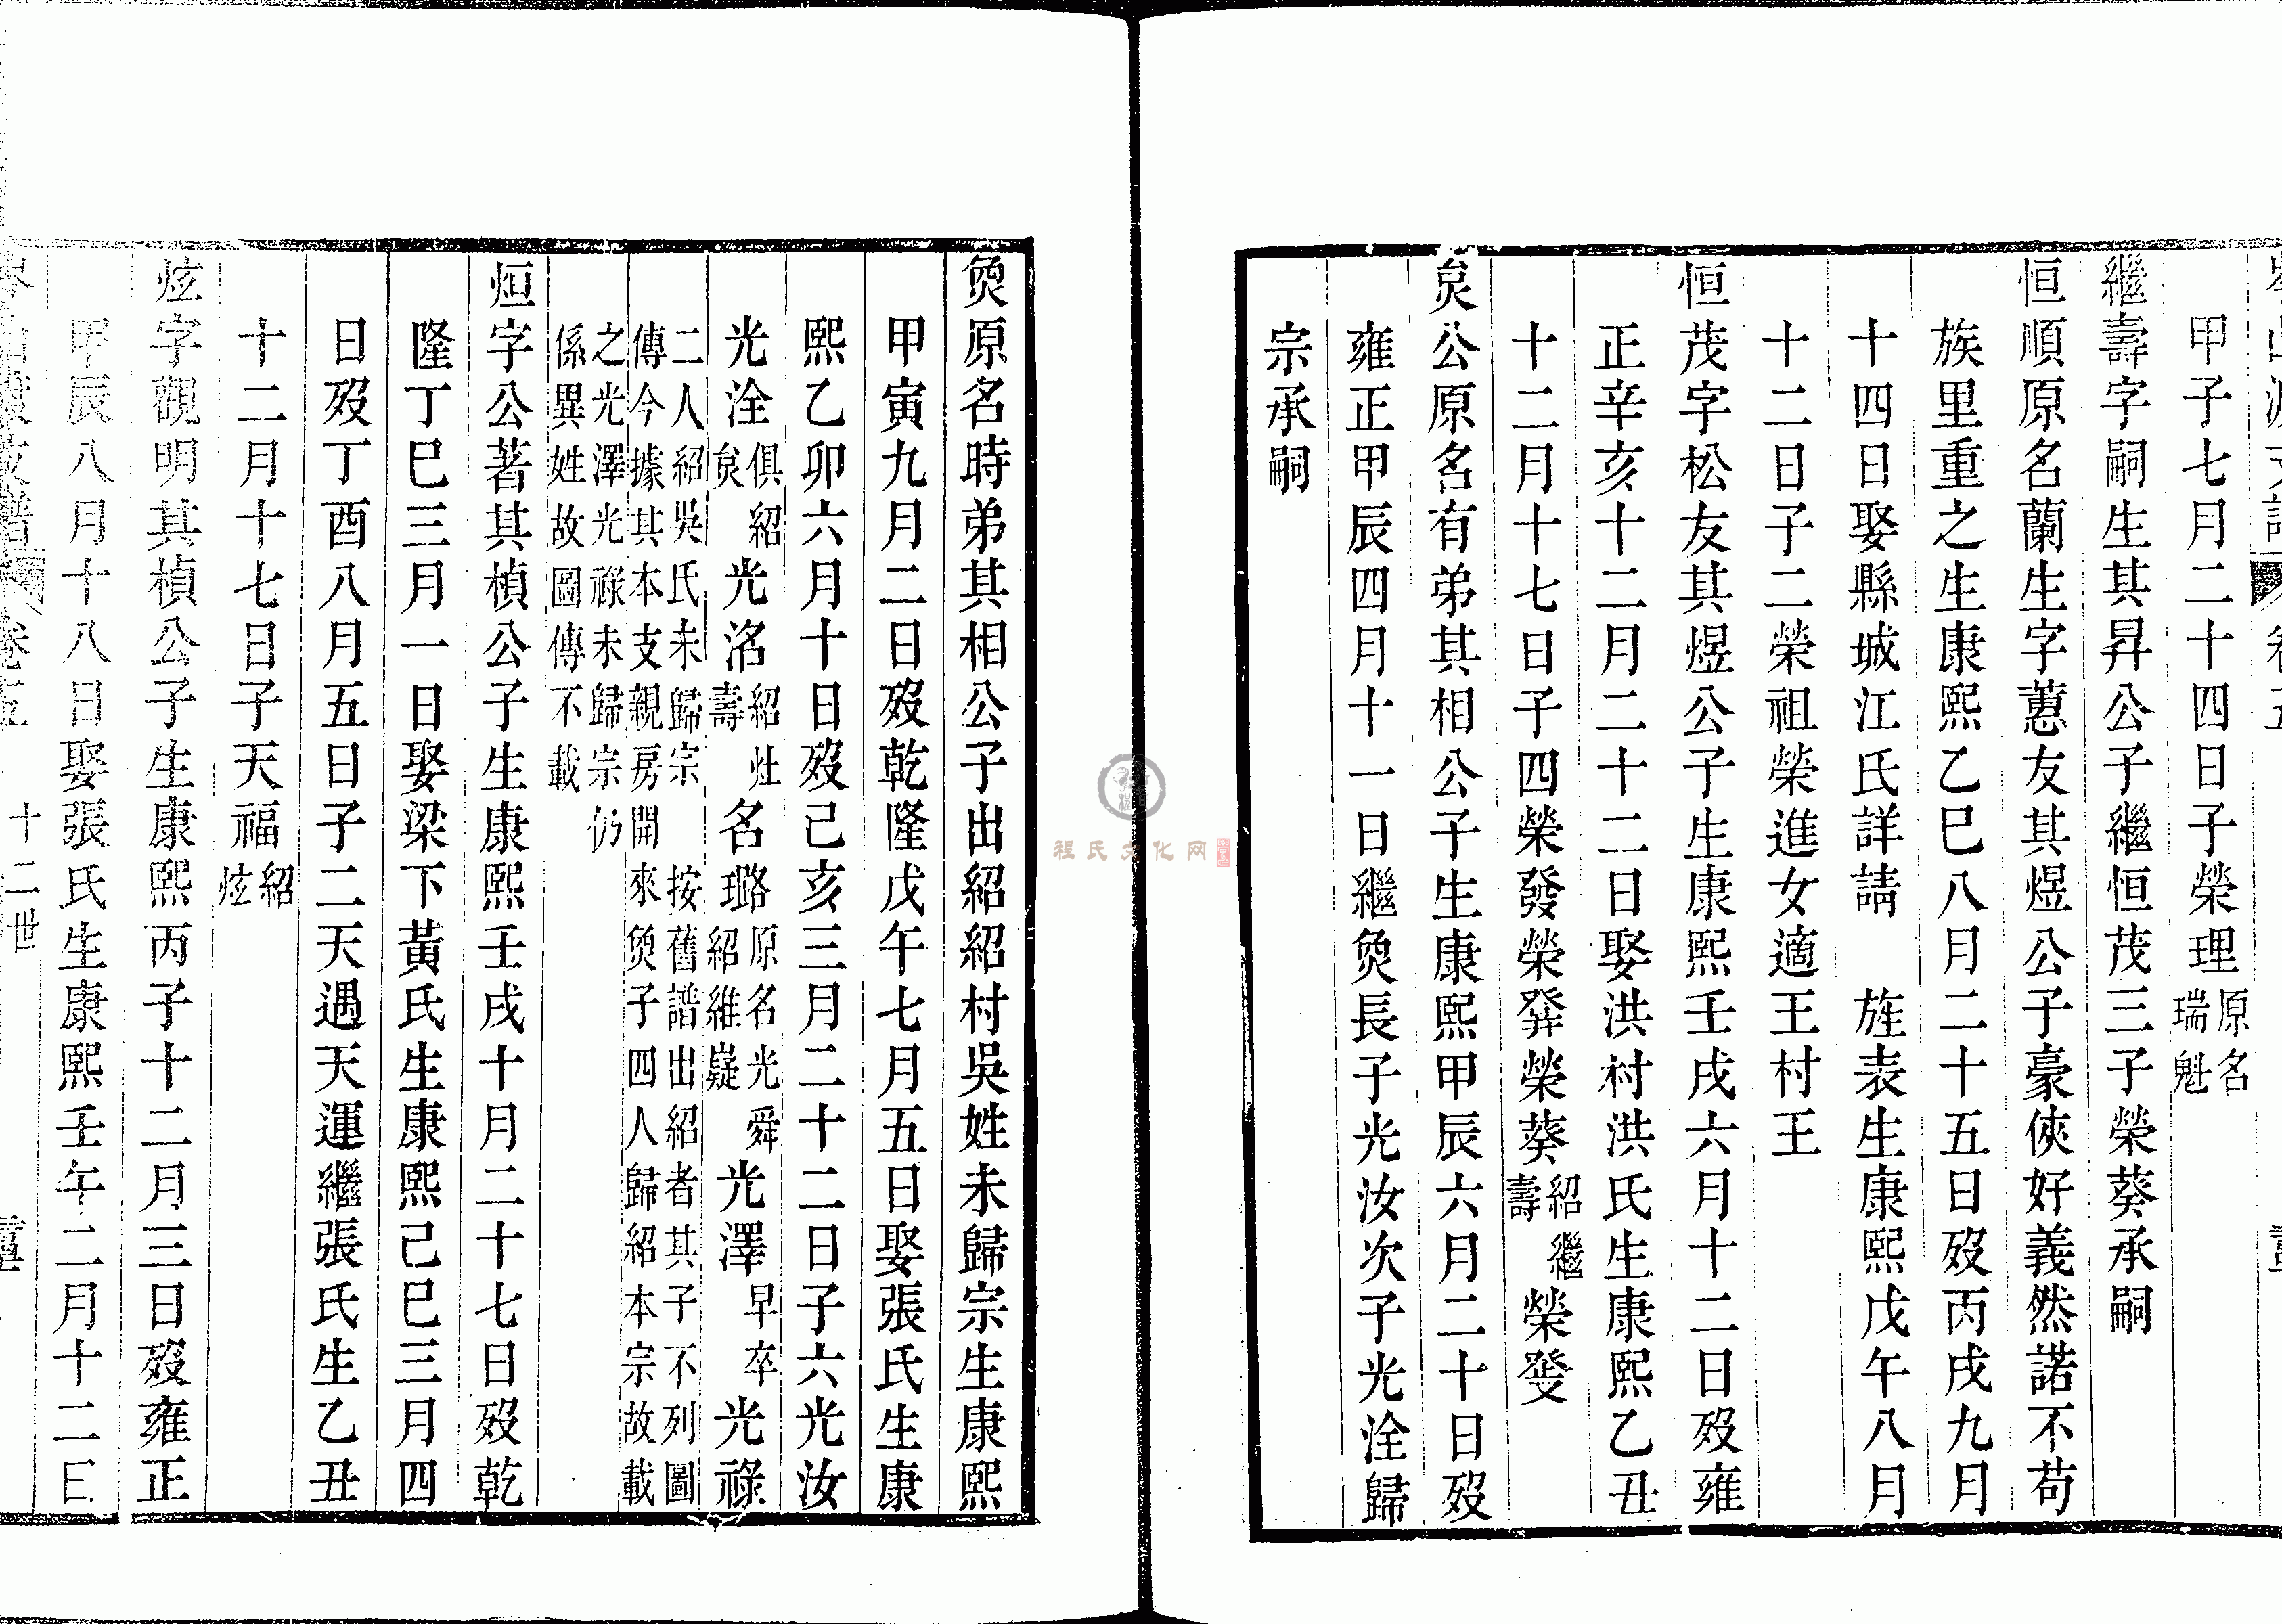 甲子七月二十四日子榮理原名瑞魁
繼壽字嗣生其昇公子繼恒茂三子榮葵承嗣
恒順原名蘭生字蕙友其煜公子豪俠好義然諾不苟
族里重之生康熙乙巳八月二十五日歿丙戌九月
十四日娶縣城江氏詳請 旌表生康熙戊午八月
十二日子二榮祖榮進女適王村王
恒茂字松友其煜公子生康熙壬戌六月十二日歿雍
正辛亥十二月二十二日娶洪村洪氏生康熙乙丑
十二月十七日子四榮發榮發榮葵紹繼壽榮發
炱公原名有弟其相公子生康熙甲辰六月二十日歿
雍正甲辰四月十一日繼煲長子光汝次子光洤歸
宗承嗣
原名時弟其相公子出紹紹村吳姓未歸宗生康熙
甲寅九月二日歿乾隆戊午七月五日娶張氏生康
熙乙卯六月十日歿己亥三月二十二日子六光汝
光洤俱紹炱光洺紹灶壽名璐原名光舜紹維嶷光澤早卒光祿
二人紹吳氏未歸宗 按舊譜出紹者其子不列圖
傳今據其本支親房開來子四人歸紹本宗故載
之光澤光祿未歸宗仍
係異姓故圖傳不載
烜字公著其楨公子生康熙壬戌十月二十七日歿乾
隆丁巳三月一日娶梁下黃氏生康熙己巳三月四
日歿丁酉八月五日子二天遇天運繼張氏生乙丑
十二月十七日子天福紹炫
炫字觀明其楨公子生康熙丙子十二月三日歿雍正
甲辰八月十八日娶張氏生康熙壬午二月十二日
十二世
程氏文化网